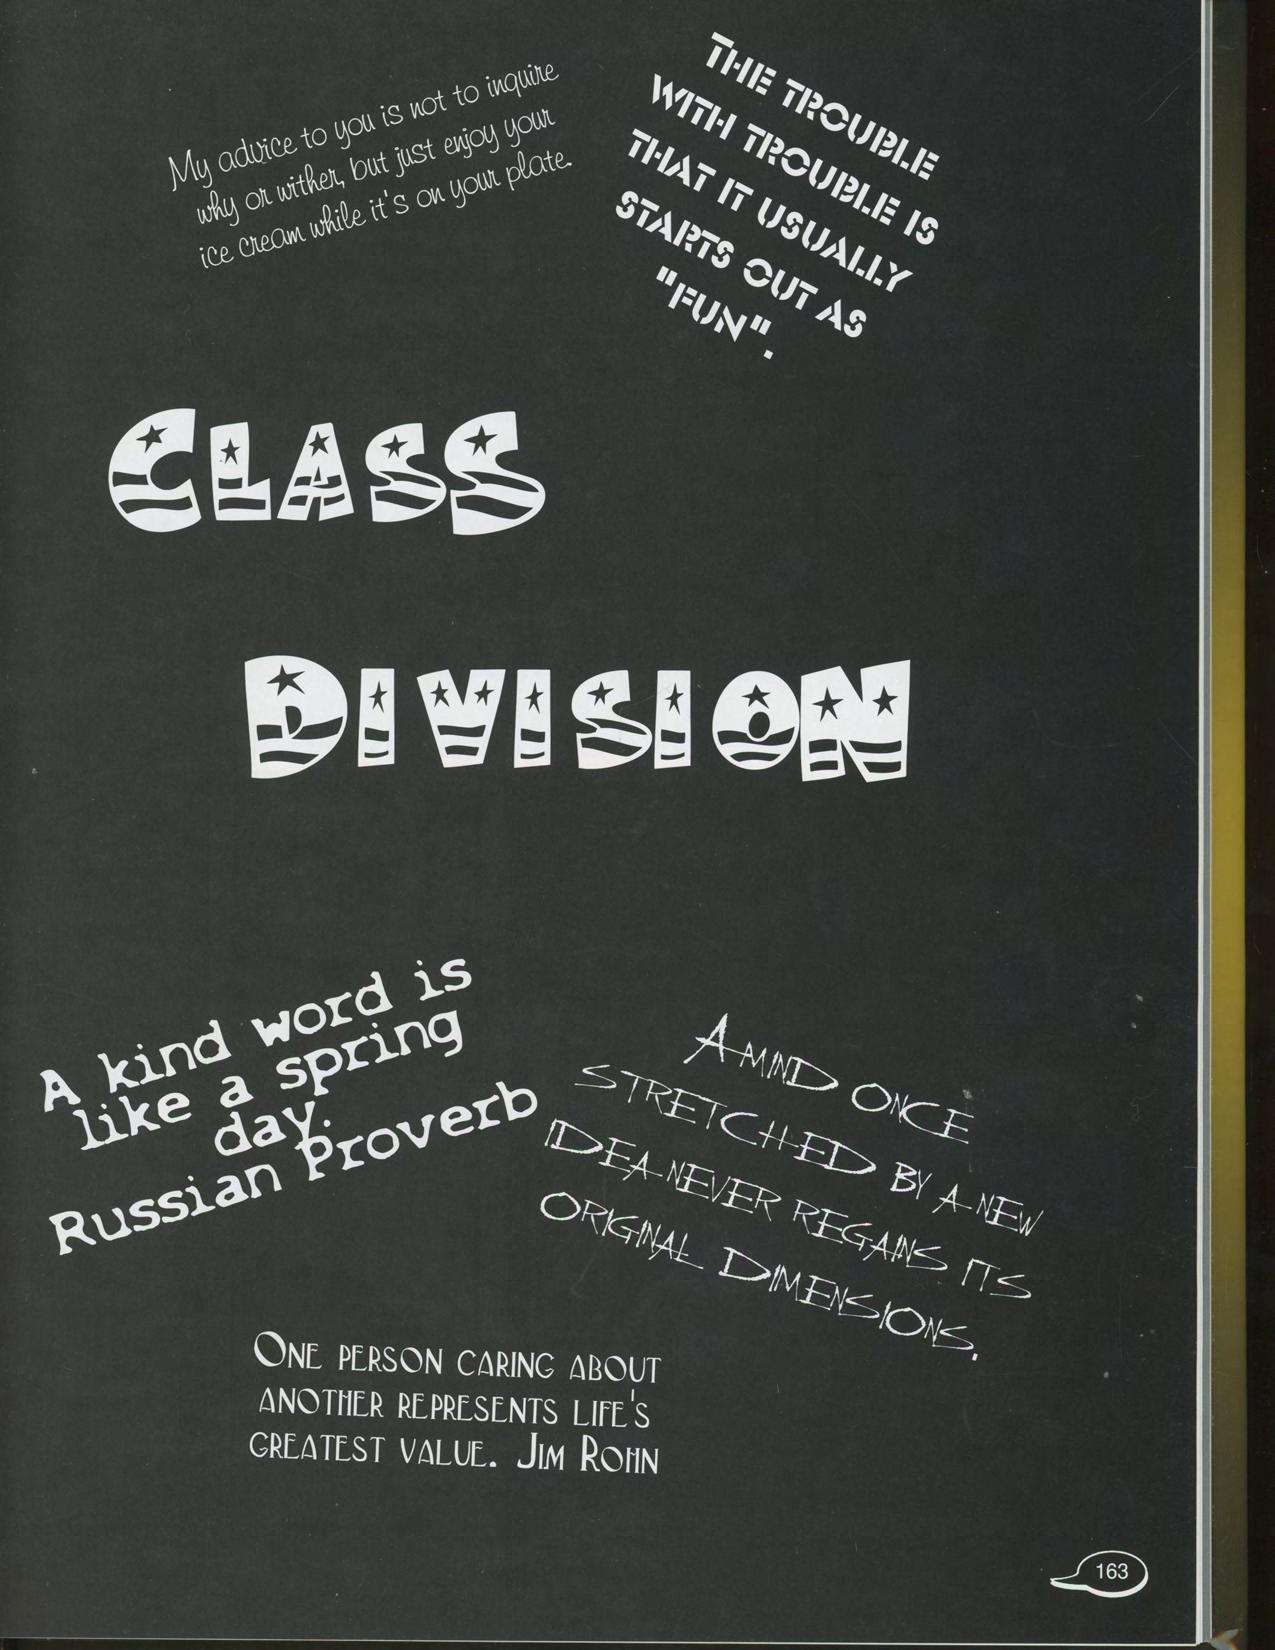 My advice to you is not to inquire
why or wither, but just enjoy your
ice cream while it's on your plate.
THE TROUBLE
WITH TROUBLE IS
THAT IT USUALLY
STARTS OUT AS
"FUN".
CLASS
DIVISION
A kind word is
like a spring
day.
Russian Proverb
A MIND ONCE
STRETCHED BY A NEW
IDEA NEVER REGAINS ITS
ORIGINAL DIMENSIONS.
ONE PERSON CARING ABOUT
ANOTHER REPRESENTS LIFE'S
GREATEST VALUE. JIM ROHN
163